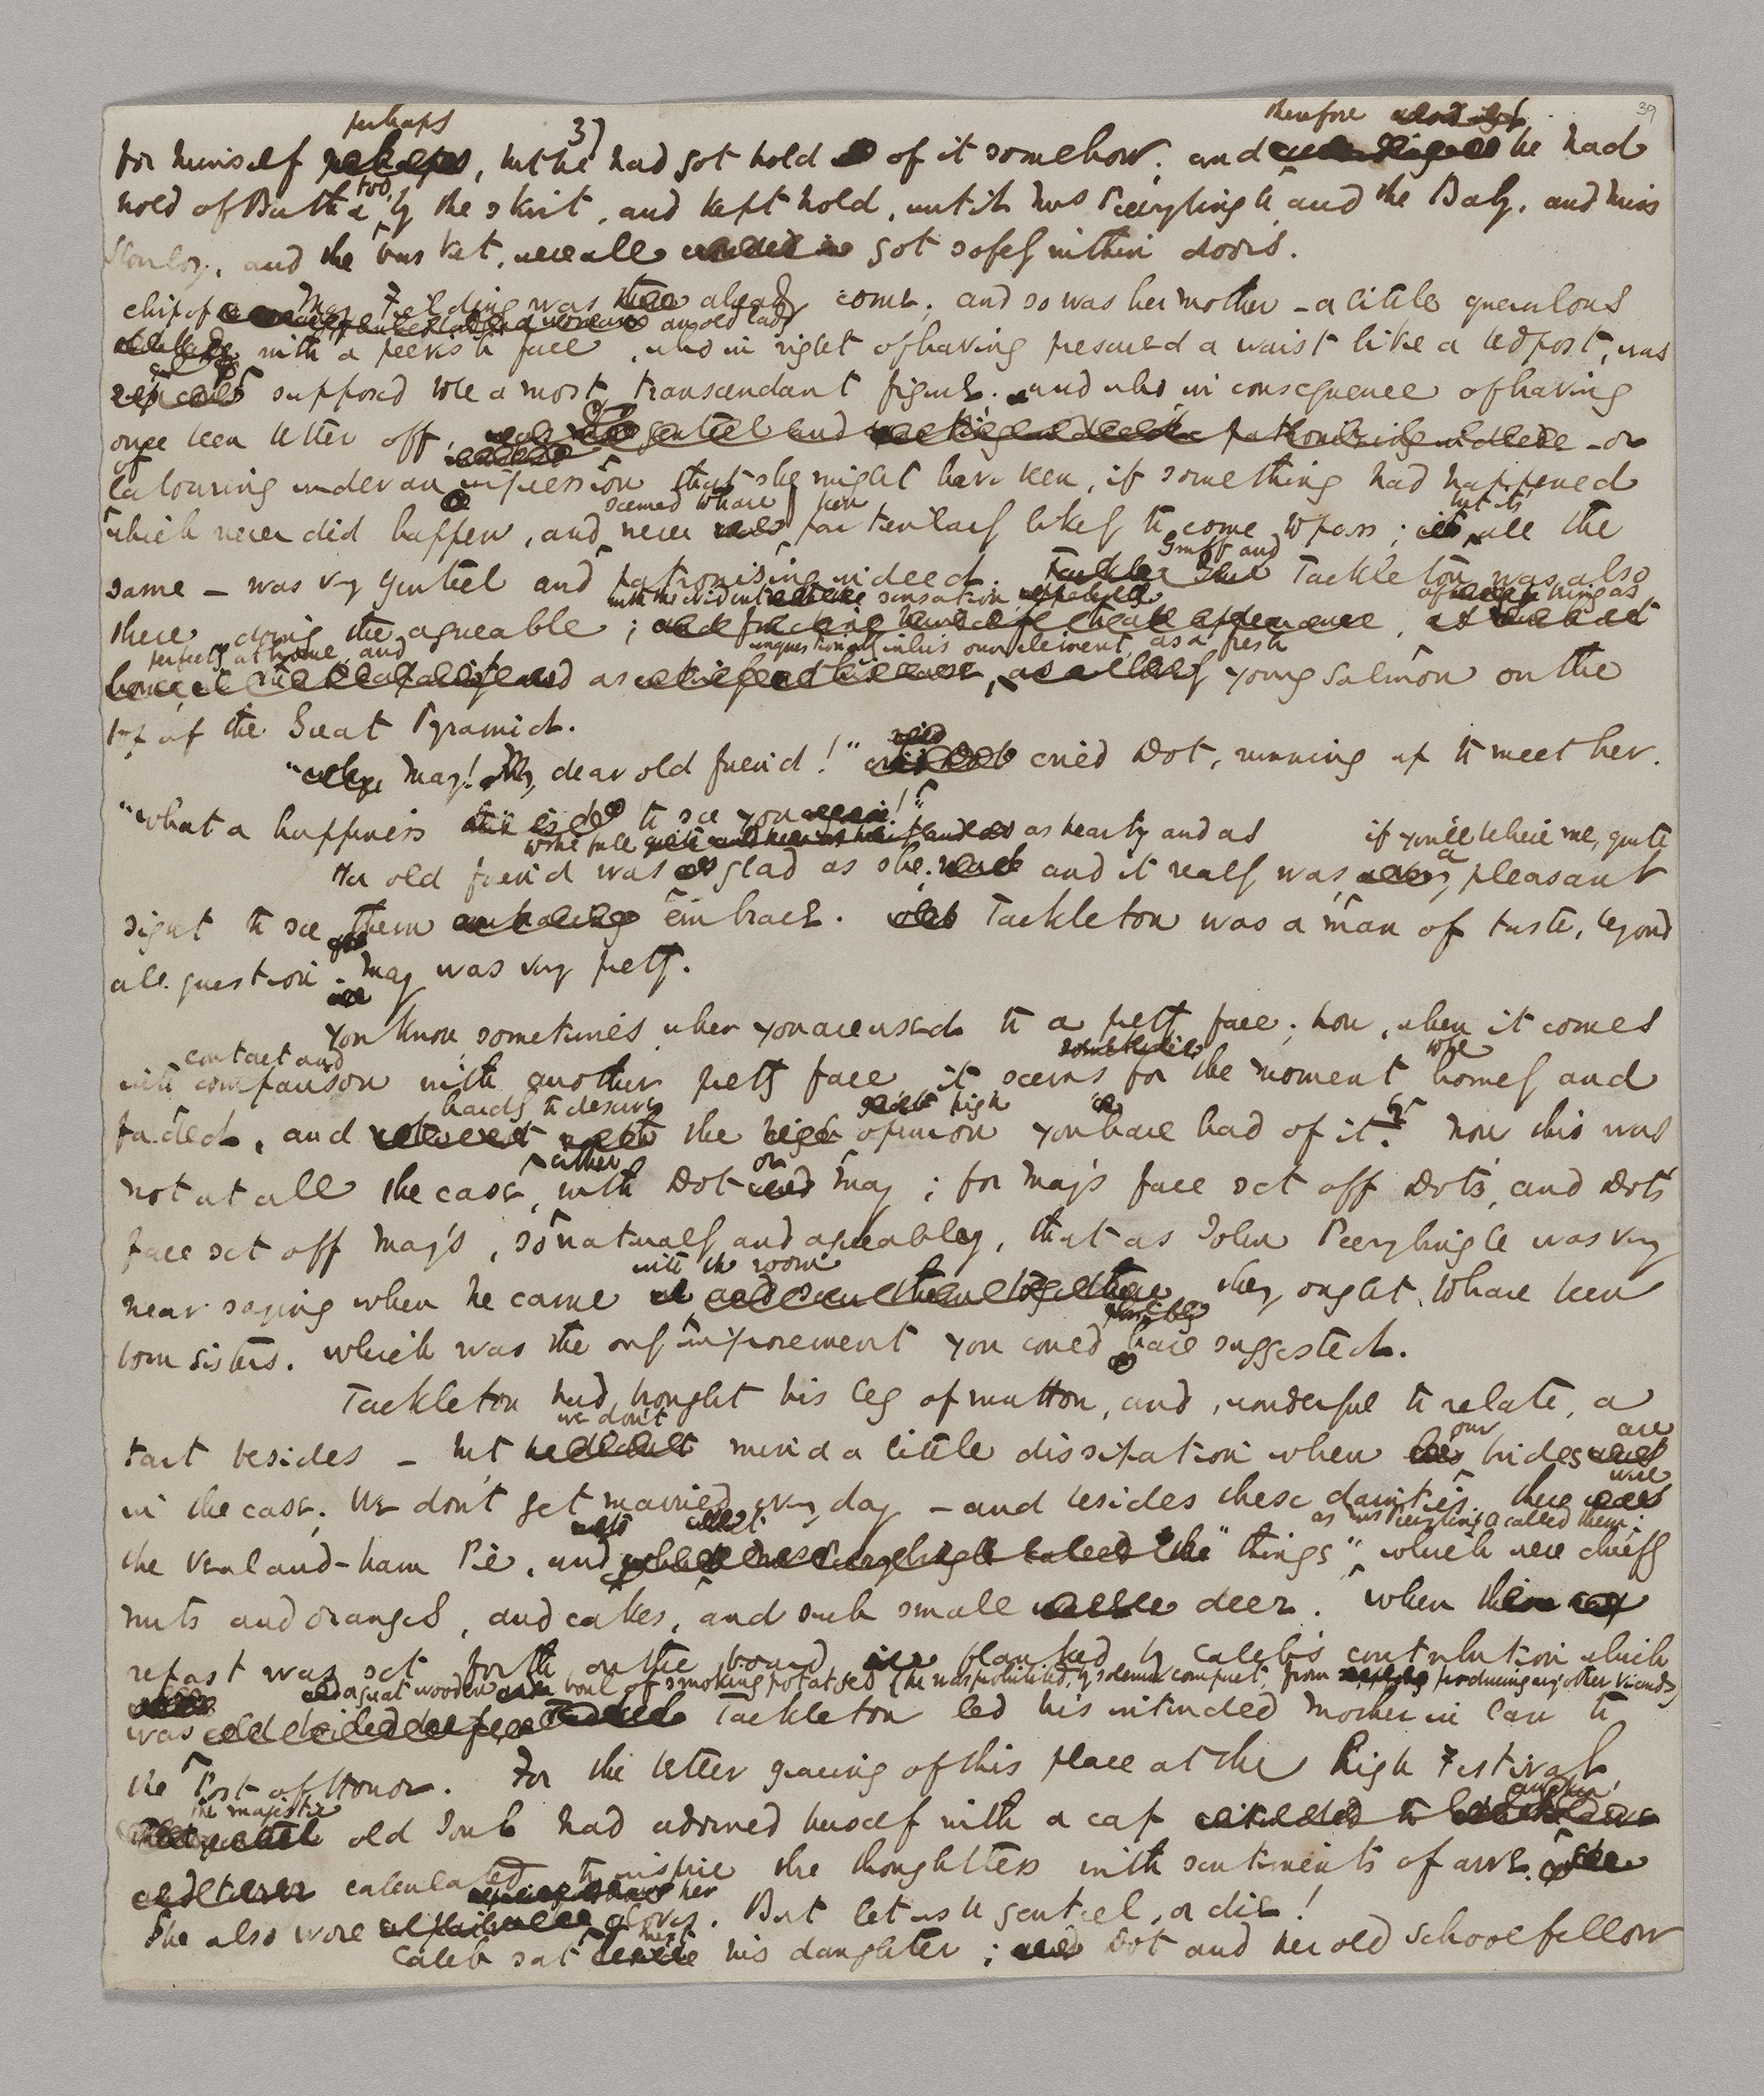 39
perhaps therefore
for himself, but he had got hold of it somehow; and he had
too
hold of Bertha by the skirt, and kept hold, until Mrs Peerybingle and the Baby, and Miss
Slowboy, and the basket, were all got safely within doors.
May Fielding was already come; and so was her mother – a little querulous
chip of an old lady
with a peevish face, who in right of having preserved a waist like a bedpost, was
supposed to be a most transcendant figure; and who in consequence of having
once been better off, – or
of
labouring under an impression that she might have been, if something had happened
seemed to have been but it's
which never did happen, and never particularly likely to come to pass; all the
same – was very genteel and patronising indeed. Gruff and Tackleton was also
with the evident sensation of being as
there doing the agreeable;
perfectly at home, and unquestionably in his own element, as a fresh
as young salmon on the
top of the Great Pyramid.
"May! My dear old friend!" cried Dot, running up to meet her.
"What a happiness to see you!"
to the full as hearty and as if you'll believe me, quite
Her old friend was glad as she; and it really was, a pleasant
sight to see them embrace. Tackleton was a man of taste, beyond
all question. May was very pretty.
You know sometimes, when you are used to a pretty face, how, when it comes
contact and to be
into comparison with another pretty face, it seems for the moment homely and
hardly to deserve high
faded, and the opinion you have had of it. Now this was
either or
not at all the case, with Dot May; for May's face set off Dot's, and Dot's
face set off May's, so naturally and agreeably, that as John Peerybingle was very
into the room
near saying when he came they ought to have been
born sisters. which was the only improvement you could have suggested.
Tackleton had brought his leg of mutton, and, wonderful to relate, a
we don't our are
tart besides – but mind a little dissipation when brides
were
in the case; We don't get married every day – and besides these dainties, there
as Mrs Peerybingle called them;
the Veal and-ham Pie, and "things", which were chiefly
nuts and oranges, and cakes, and such small deer. When the
repast was set forth on the board flanked by Caleb's contribution which
a great wooden bowl of smoking potatoes (he was prohibited, by solemn compact, from producing any other viands)
was Tackleton led his intended Mother in Law to
the Post of Honor. For the better gracing of this place at the High Festival
the majestic
old Soul had adorned herself with a cap
calculated to inspire the thoughtless with sentiments of awe.
her
She also wore gloves. But let us be genteel, or die!
next
Caleb sat his daughter; Dot and her old schoolfellow